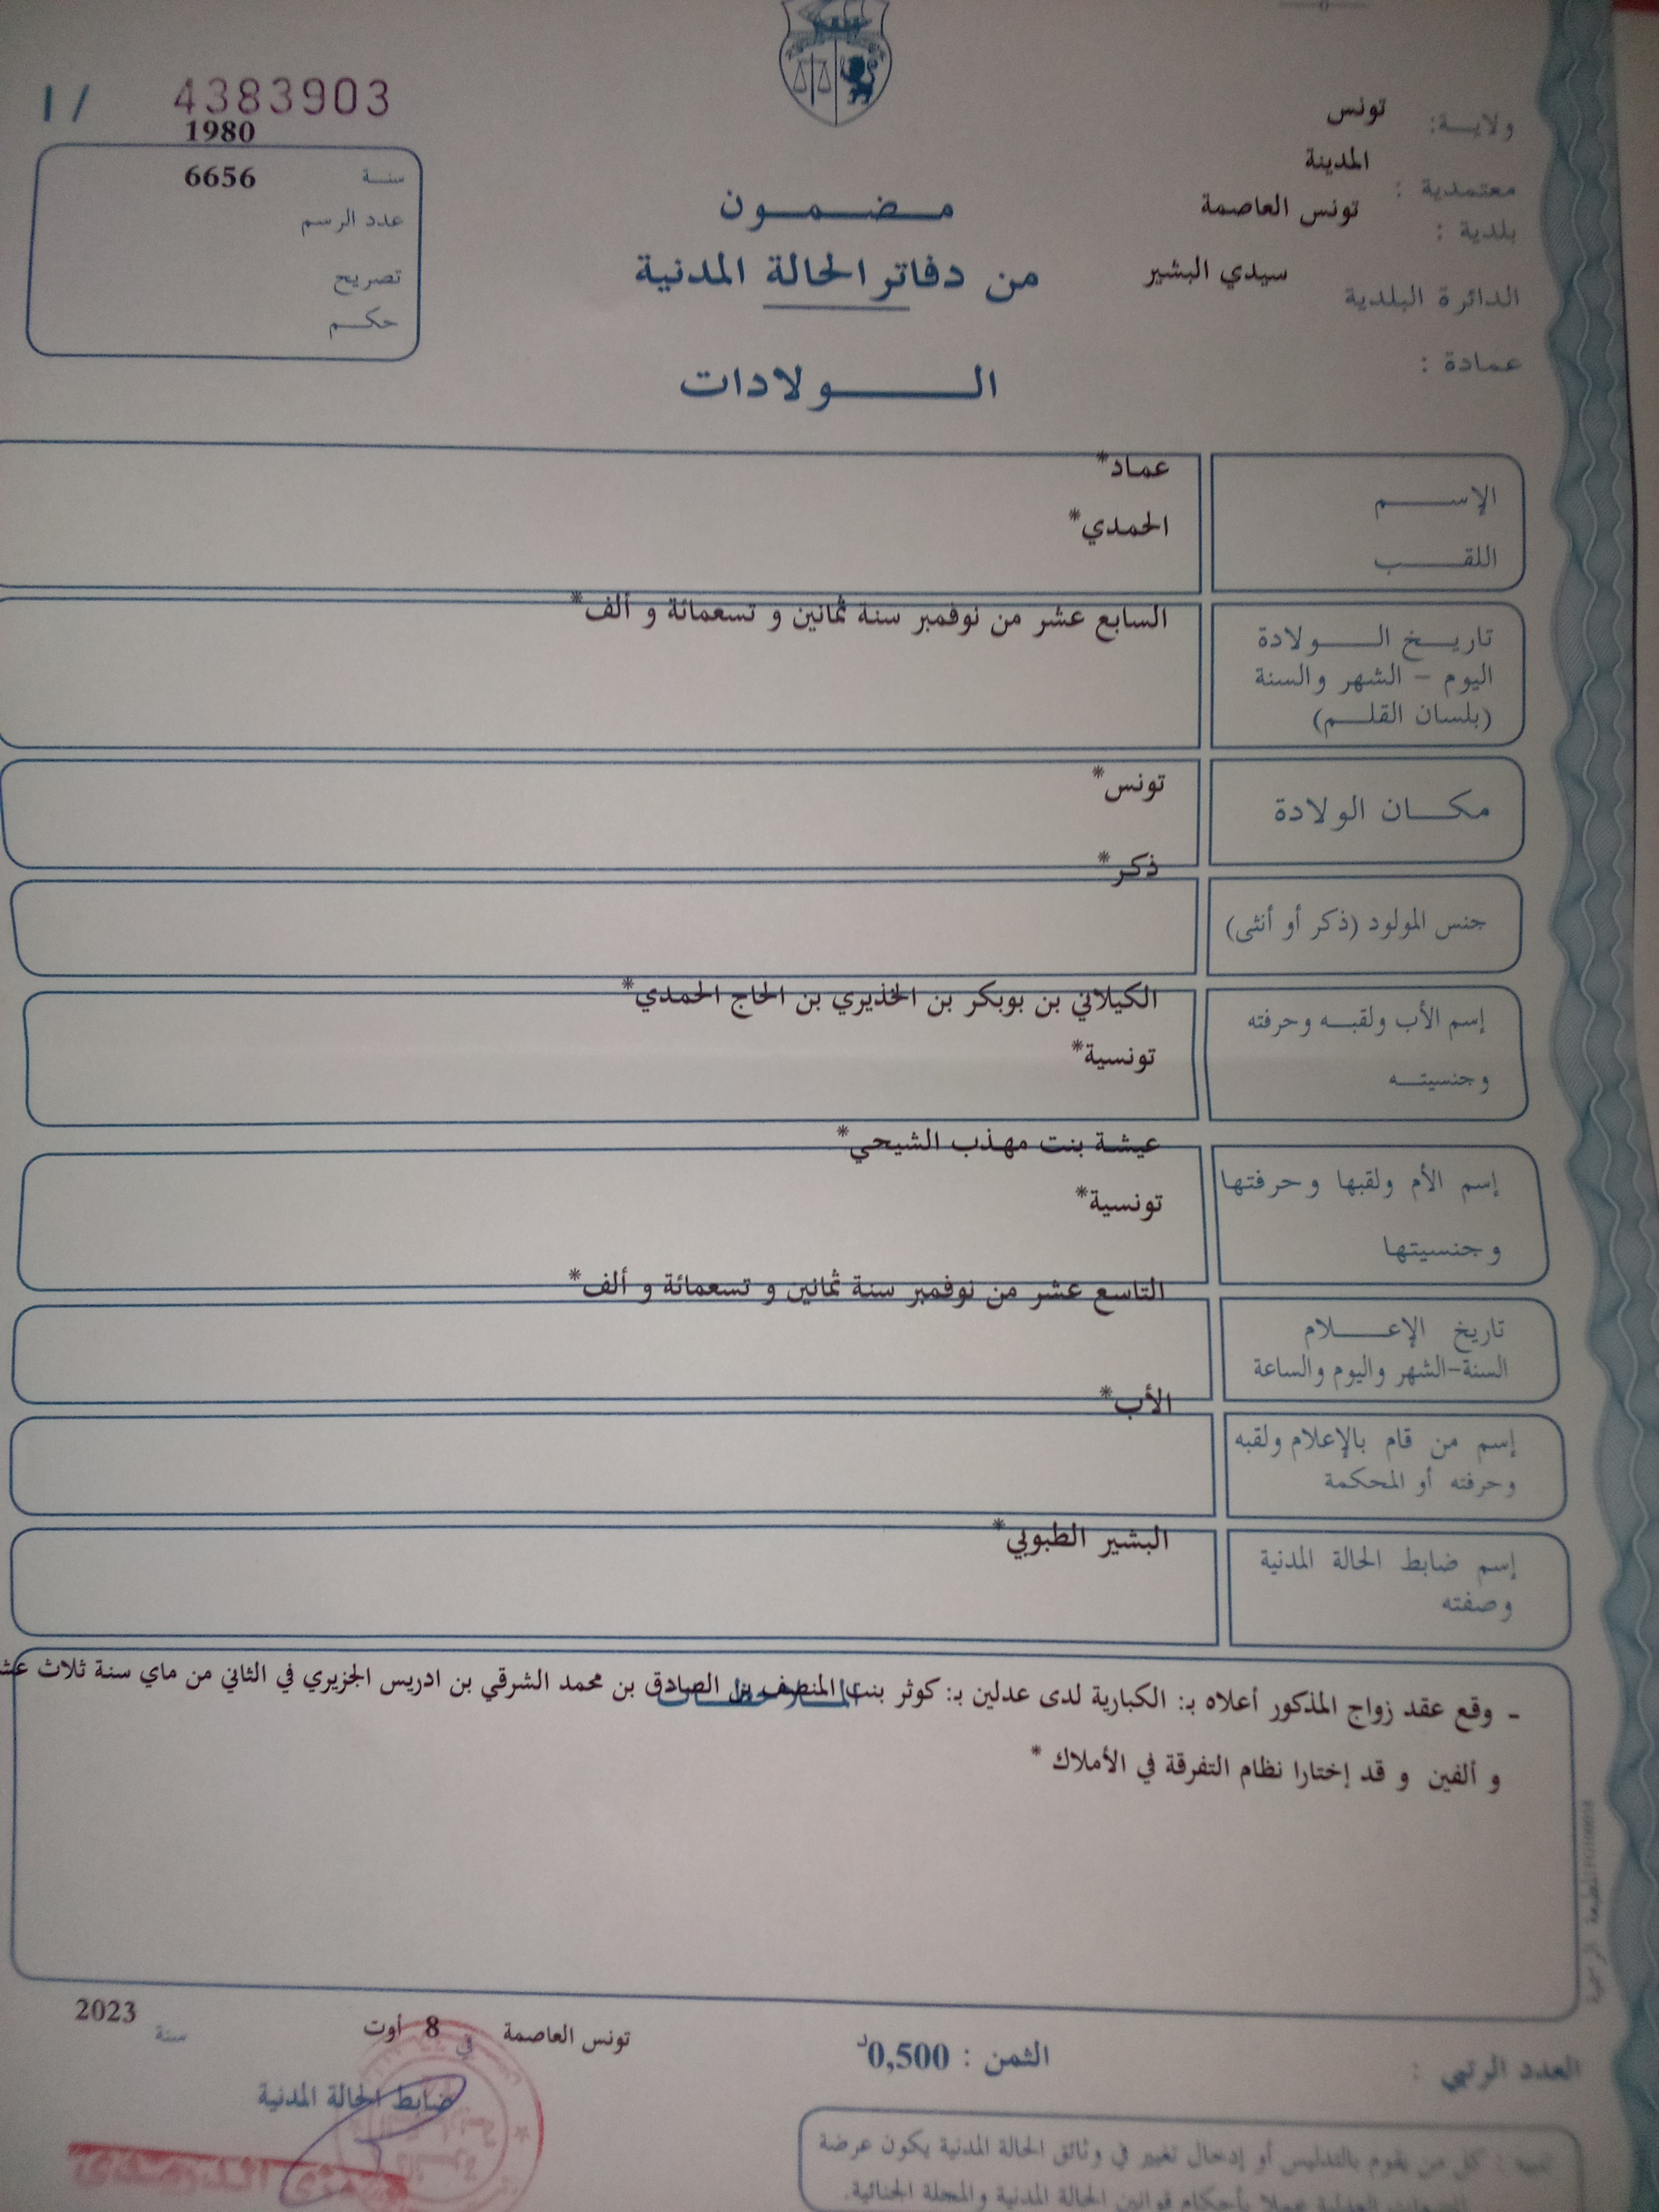 ولاية: تونس
معتمدية : المدينة
بلدية : تونس العاصمة
الدائرة البلدية سيدي البشير
عمادة :
مضمون
من دفاتر الحالة المدنية
الولادات
1/ 4383903
1980
سنة 6656
عدد الرسم
تصريح
حكم
الإسم عماد*
اللقب الحمدي*
تاريخ الولادة السابع عشر من نوفمبر سنة ثمانين و تسعمائة و ألف*
اليوم - الشهر والسنة
(بلسان القلم)
مكان الولادة تونس*
جنس المولود (ذكر أو أنثى) ذكر*
إسم الأب ولقبه وحرفته الكيلاني بن بوبكر بن الخذيري بن الحاج الحمدي*
وجنسيته تونسية*
إسم الأم ولقبها وحرفتها عيشة بنت مهذب الشيحي*
وجنسيتها تونسية*
تاريخ الإعلام التاسع عشر من نوفمبر سنة ثمانين و تسعمائة و ألف*
السنة-الشهر واليوم والساعة
إسم من قام بالإعلام ولقبه الأب*
وحرفته أو المحكمة
إسم ضابط الحالة المدنية البشير الطبوبي*
وصفته
- وقع عقد زواج المذكور أعلاه بـ: الكبارية لدى عدلين بـ: كوثر بنت المنصف بن الصادق بن محمد الشرقي بن ادريس الجزيري في الثاني من ماي سنة ثلاث عشر
و ألفين و قد إختارا نظام التفرقة في الأملاك *
العدد الرتبي :
الثمن : 0,500د
تونس العاصمة في 8 أوت سنة 2023
ضابط الحالة المدنية
تنبيه : كل من يقوم بالتدليس أو إدخال تغيير في وثائق الحالة المدنية يكون عرضة
العدلية عملا بأحكام قوانين الحالة المدنية والمجلة الجنائية.